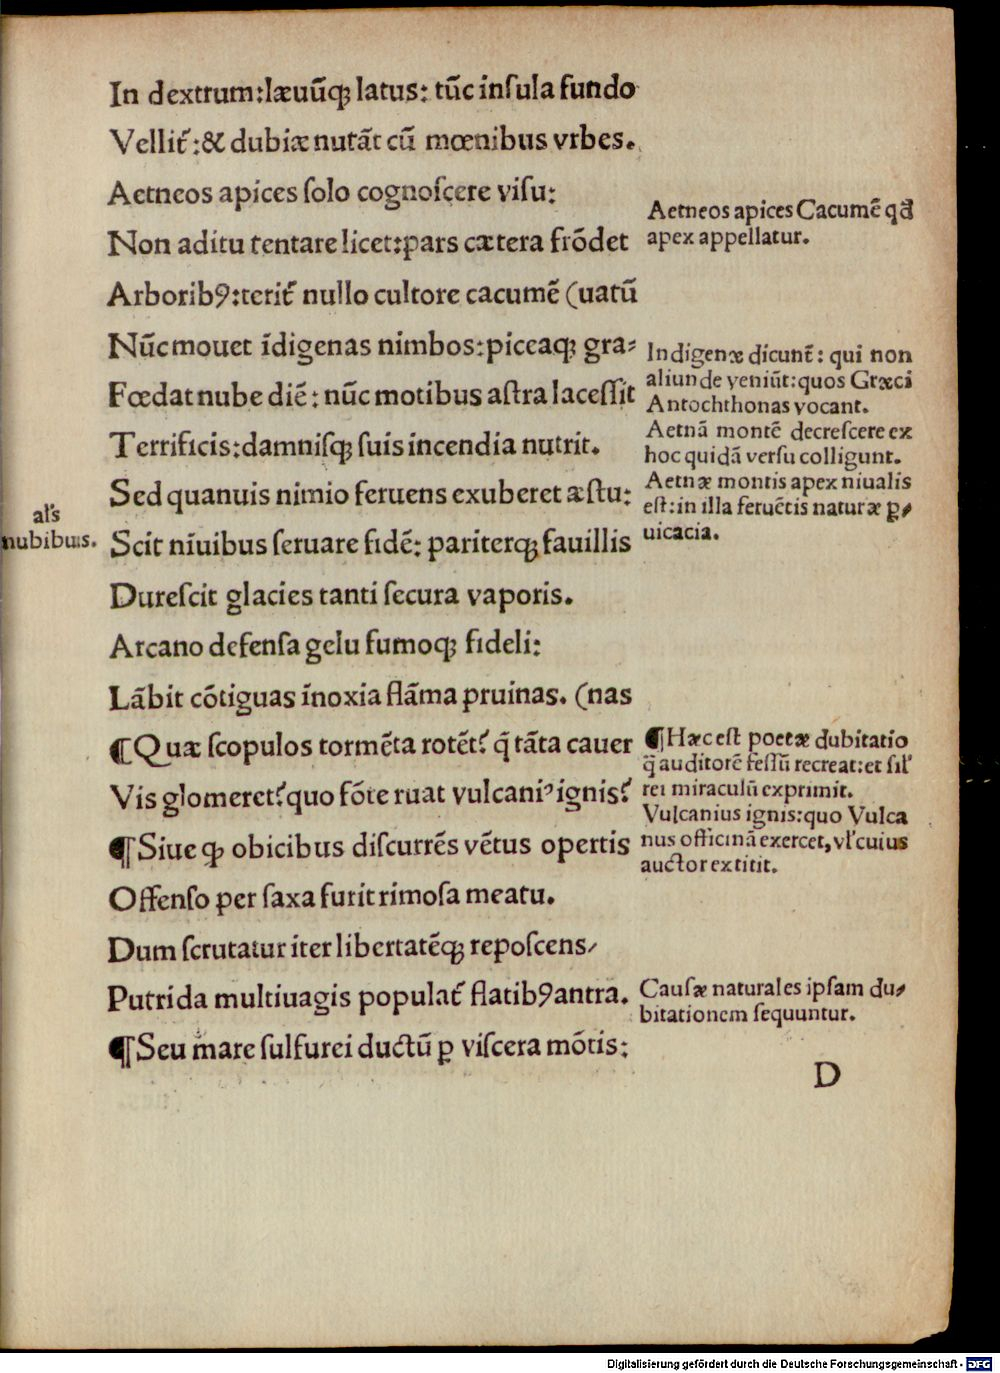 In dextrum:læuũqꝫ latus: tũc inſula fundo
Vellit᷑:& dubiæ nutãt cũ mœnibus vrbes.
Aetneos apices ſolo cognoſcere viſu:
Non aditu tentare licet:pars cætera frõdet
Arboribꝰ:terit᷑ nullo cultore cacumẽ (uatũ
Nũc mouet ĩdigenas nimbos:piceaqꝫ gra⸗
Fœdat nube diẽ: nũc motibus aſtra laceſſit
Terrificis:damniſqꝫ ſuis incendia nutrit.
Sed quanuis nimio feruens exuberet æſtu:
Scit niuibus ſeruare fidẽ: pariterqꝫ fauillis
Dureſcit glacies tanti ſecura vaporis.
Arcano defenſa gelu fumoqꝫ fideli:
Lãbit cõtiguas inoxia flãma pruinas. (nas
¶Quæ ſcopulos tormẽta rotẽt? q̃ tãta cauer
Vis glomeret?quo fõte ruat vulcaniꝰ ignis?
¶Siue qꝫ obicibus diſcurrẽs vẽtus opertis
Offenſo per ſaxa furit rimoſa meatu.
Dum ſcrutatur iter libertatẽqꝫ repoſcens/
Putrida multiuagis populat᷑ flatibꝰ antra.
¶Seu mare ſulfurei ductũ ꝑ viſcera mõtis:
Aetneos apices Cacumẽ qđ
apex appellatur.
Indigenæ dicunt᷑: qui non
aliunde veniũt:quos Græci
Antochthonas vocant.
Aetnã montẽ decreſcere ex
hoc quidã verſu colligunt.
Aetnæ montis apex niualis
eſt:in illa feruẽtis naturæ ꝑ⸗
uicacia.
al's
nubibus.
¶Hæc eſt poetæ dubitatio
q̃ auditorẽ feſſũ recreat:et ſil'
rei miraculũ exprimit.
Vulcanius ignis:quo Vulca
nus officinã exercet, vl' cuius
auctor extitit.
Cauſæ naturales ipſam du⸗
bitationem ſequuntur.
D
Digitalisierung gefördert durch die Deutsche Forschungsgemeinschaft - DFG